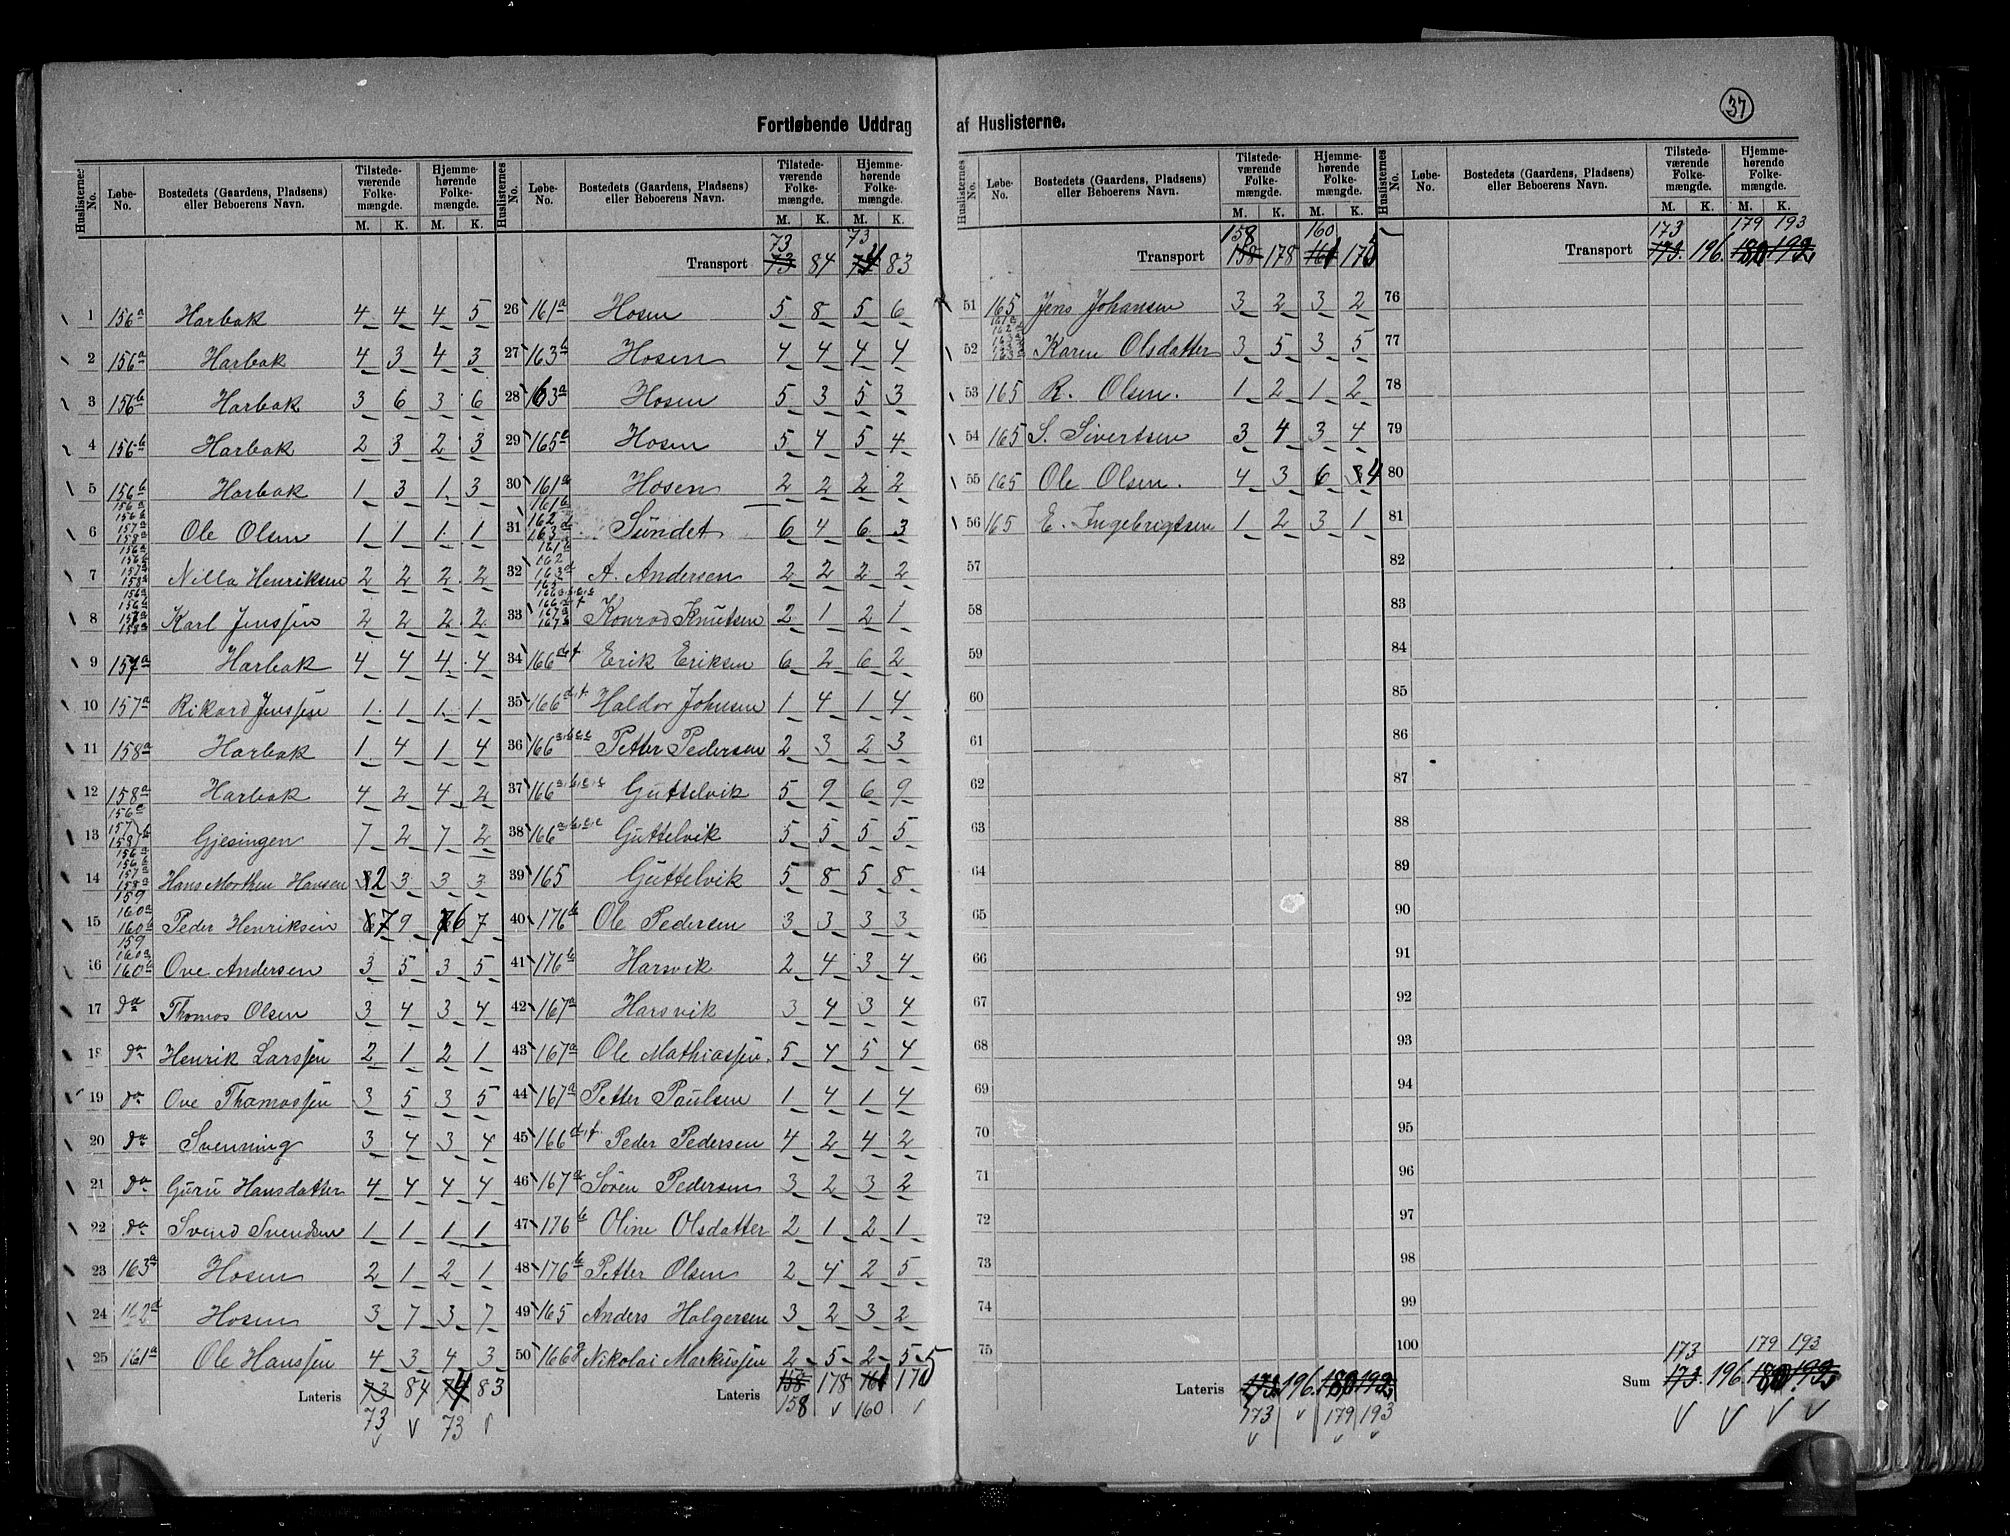 37
Fortløbende Uddrag af Huslisterne.
Huslisternes No. | Løbe-No. | Bostedets (Gaardens, Pladsens) eller Beboerens Navn. | Tilstedeværende Folkemængde. M. K. | Hjemmehørende Folkemængde. M. K.
1 156a Harbak 4 4 4 5
2 156a Harbak 4 3 4 3
3 156b Harbak 3 6 3 6
4 156b Harbak 2 3 2 3
5 156b Harbak 1 3 1 3
6 156a 156b 157a 158a Ole Olsen 1 1 1 1
7 156a 156b 157a 158a Nilla Henriksen 2 2 2 2
8 156a 156b 157a 158a Karl Jenssen 2 2 2 2
9 157a Harbak 4 4 4 4
10 157a Rikard Jenssen 1 1 1 1
11 158a Harbak 1 4 1 4
12 158a Harbak 4 2 4 2
13 156 157 158 b Gjesingen 7 2 7 2
14 156a 156b 157a 158a Hans Morthen Hansen 2 3 3 3
15 159 160a 160b Peder Henriksen 7 9 6 7
16 159 160a 160b Ove Andersen 3 5 3 5
17 do Thomas Olsen 3 4 3 4
18 do Henrik Larssen 2 1 2 1
19 do Ove Thomassen 3 5 3 5
20 do Svenning 3 4 3 4
21 do Guru Hansdatter 4 4 4 4
22 do Svend Svendsen 1 1 1 1
23 163a Hosen 2 1 2 1
24 162d Hosen 3 7 3 7
25 161a Ole Hanssen 4 3 4 3
Lateris 73 84 74 83
73 73
Huslisternes No. | Løbe-No. | Bostedets (Gaardens, Pladsens) eller Beboerens Navn. | Tilstedeværende Folkemængde. M. K. | Hjemmehørende Folkemængde. M. K.
73 73
Transport 73 84 74 83
26 161a Hosen 5 8 5 6
27 163b Hosen 4 4 4 4
28 163a Hosen 5 3 5 3
29 165a Hosen 5 4 5 4
30 161a Hosen 2 2 2 2
31 161b 162 163d Sundet 6 4 6 3
32 161b 162 163d A. Andersen 2 2 2 2
33 Konrad Knutsen 2 1 2 1
34 166d,f Erik Eriksen 6 2 6 2
35 166d,f Haldor Johnsen 1 4 1 4
36 166a,b,c,e Petter Pedersen 2 3 2 3
37 166a,b,c,e Guttelvik 5 9 6 9
38 166a,b,c,e Guttelvik 5 5 5 5
39 165 Guttelvik 5 8 5 8
40 176b Ole Pedersen 3 3 3 3
41 176b Harsvik 2 4 3 4
42 167a Harsvik 3 4 3 4
43 167a Ole Mathiassen 5 4 5 4
44 167a Petter Paulsen 1 4 1 4
45 166d,f Peder Pedersen 4 2 4 2
46 167a Sören Pedersen 3 2 3 2
47 176b Oline Olsdatter 2 1 2 1
48 176b Petter Olsen 2 4 2 5
49 165 Anders Holgersen 3 2 3 2
50 166g Nikolai Markussen 2 5 2 5 5
Lateris 158 178 161 175
158 160
Huslisternes No. | Løbe-No. | Bostedets (Gaardens, Pladsens) eller Beboerens Navn. | Tilstedeværende Folkemængde. M. K. | Hjemmehørende Folkemængde. M. K.
158 160
Transport 158 178 161 175
51 165 Jens Johansen 3 2 3 2
52 Karen Olsdatter 3 5 3 5
53 165 R. Olsen. 1 2 1 2
54 165 S. Sivertsen 3 4 3 4
55 165 Ole Olsen. 4 3 6 4
56 165 E. Ingebrigtsen 1 2 3 1
57
58
59
60
61
62
63
64
65
66
67
68
69
70
71
72
73
74
75
Lateris 173 196 180 192
173 179 193
Huslisternes No. | Løbe-No. | Bostedets (Gaardens, Pladsens) eller Beboerens Navn. | Tilstedeværende Folkemængde. M. K. | Hjemmehørende Folkemængde. M. K.
173 179 193
Transport 173 196 180 192
76
77
78
79
80
81
82
83
84
85
86
87
88
89
90
91
92
93
94
95
96
97
98
99
100
173 179 193
Sum 173 196 180 192